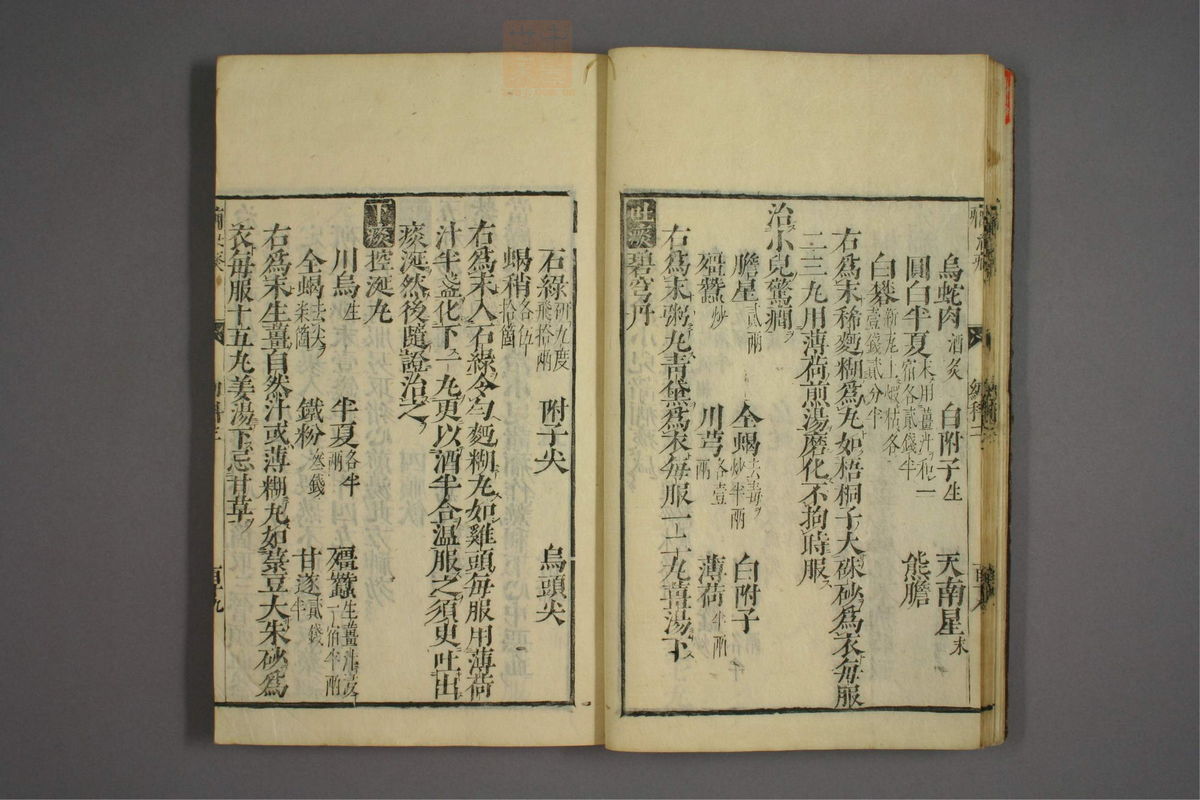 烏蛇肉酒炙 白附子生 天南星末
圓白半夏末用薑汁和一宿各貳錢半 熊膽
白礬新瓦上煅枯各壹錢貳分半
右爲末稀麪糊爲丸如梧桐子大硃砂爲衣每服
二三丸用薄荷煎湯磨化不拘時服
治小兒驚癇
膽星貳兩 全蝎去毒炒半兩 白附子
殭蠶炒 川芎各壹兩 薄荷半兩
右爲末粥丸青黛爲衣每服一二十丸薑湯下
吐痰 碧穹丹
石綠研九度飛拾兩 附子尖 烏頭尖
蝎稍各伍拾箇
右爲末入石綠令勻麪糊丸如雞頭每服用薄荷
汁半盞化下一丸更以酒半合温服之須臾吐出
痰涎然後隨證治之
下痰 控涎丸
川烏生 半夏各半兩 殭蠶生薑汁浸一宿半兩
全蝎去尖柒箇 鐵粉叁錢 甘遂貳錢半
右爲末生薑自然汁或薄糊丸如菉豆大朱砂爲
衣每服十五丸姜湯下忌甘草